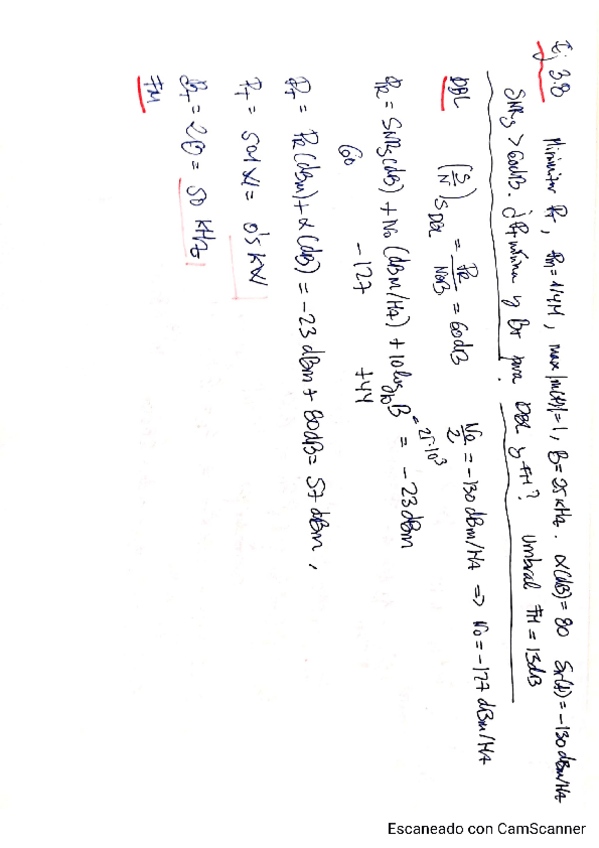 Ej 3.8 Minimizar P_T, P_m = 1/4 M, max|m(t)| = 1, B = 25 kHz. α(dB) = 80 S_n(f) = -130 dBm/Hz
SNR_S > 60 dB. ¿P_T mínima y B_T para DBL y FM? Umbral FM = 13 dB
DBL (S/N)_S DBL = P_R/N_0B = 60 dB N_0/2 = -130 dBm/Hz => N_0 = -127 dBm/Hz
P_R = SNR_S(dB) + N_0(dBm/Hz) + 10 log_10 B = -23 dBm
= 25·10^3
60 -127 +44
P_T = P_R(dBm) + α(dB) = -23 dBm + 80 dB = 57 dBm,
P_T = 501 W = 0'5 kW
B_T = 2B = 50 kHz
FM
Escaneado con CamScanner